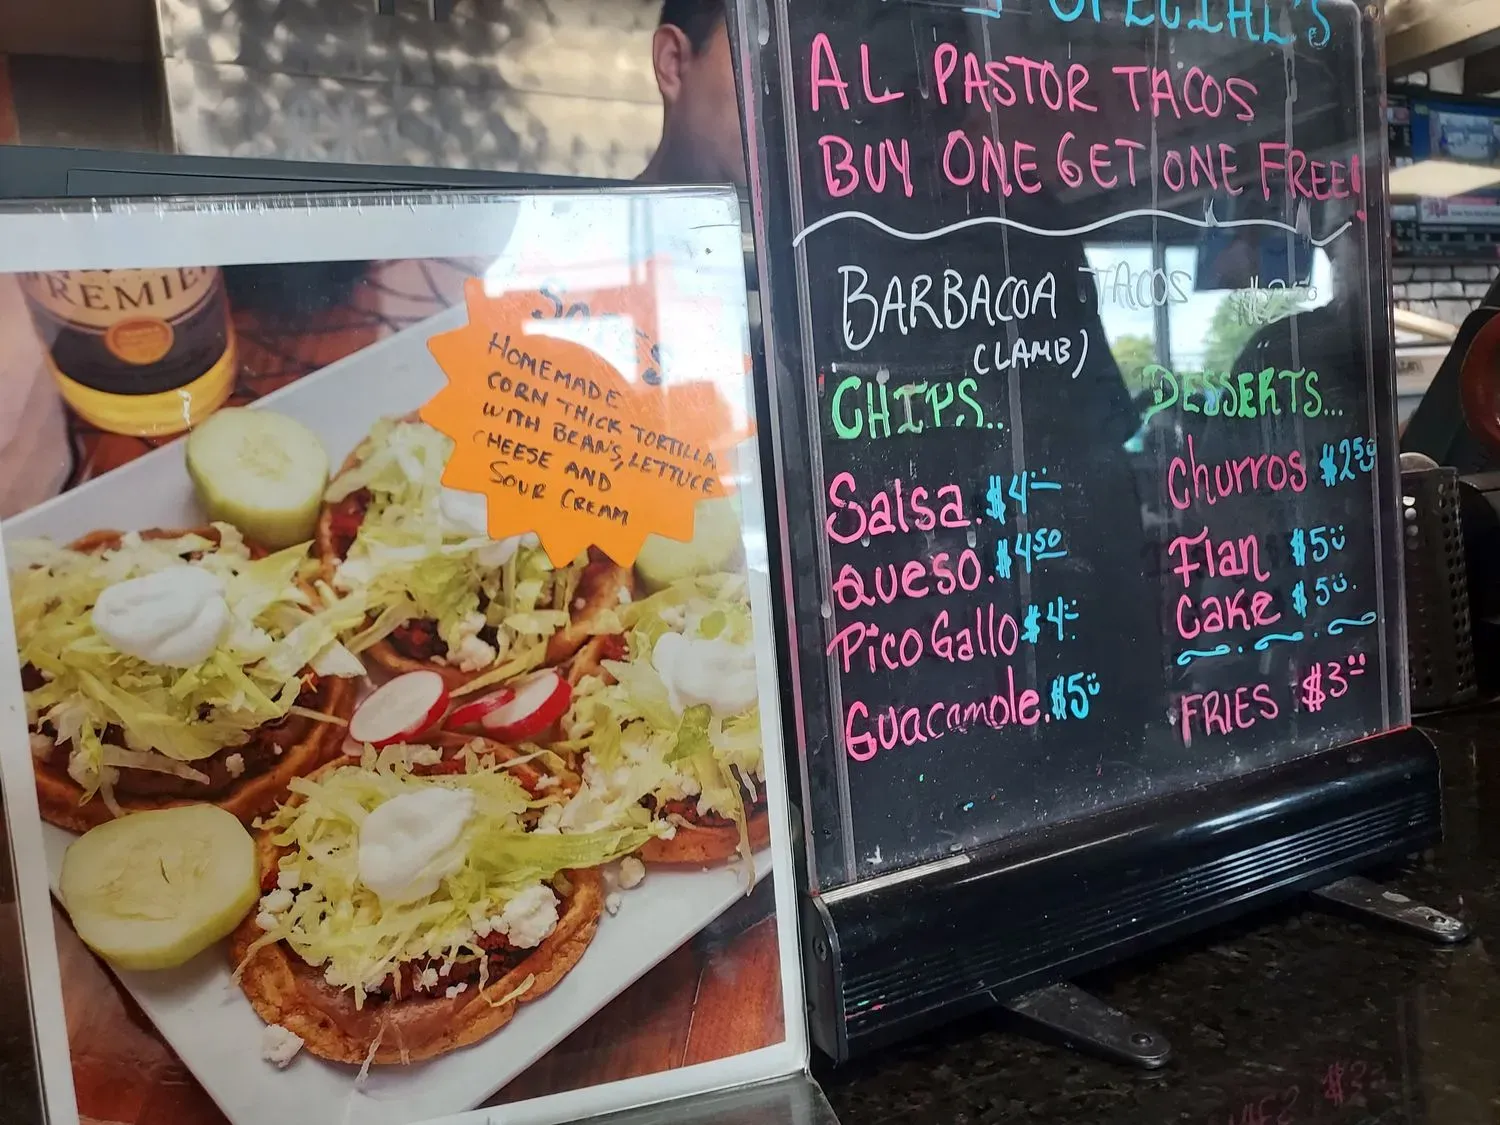 REMIE
HOMEMADE
CORN THICK TORTILLA
WITH BEANS, LETTUCE
CHEESE AND
SOUR CREAM
SPECIAL'S
AL PASTOR TACOS
BUY ONE GET ONE FREE!
BARBACOA TACOS
(LAMB)
CHIPS..
Salsa. $4
Queso. $4.50
Pico Gallo $4
Guacamole. $5
DESSERTS...
Churros $2.50
Flan $5
Cake $5
FRIES $3